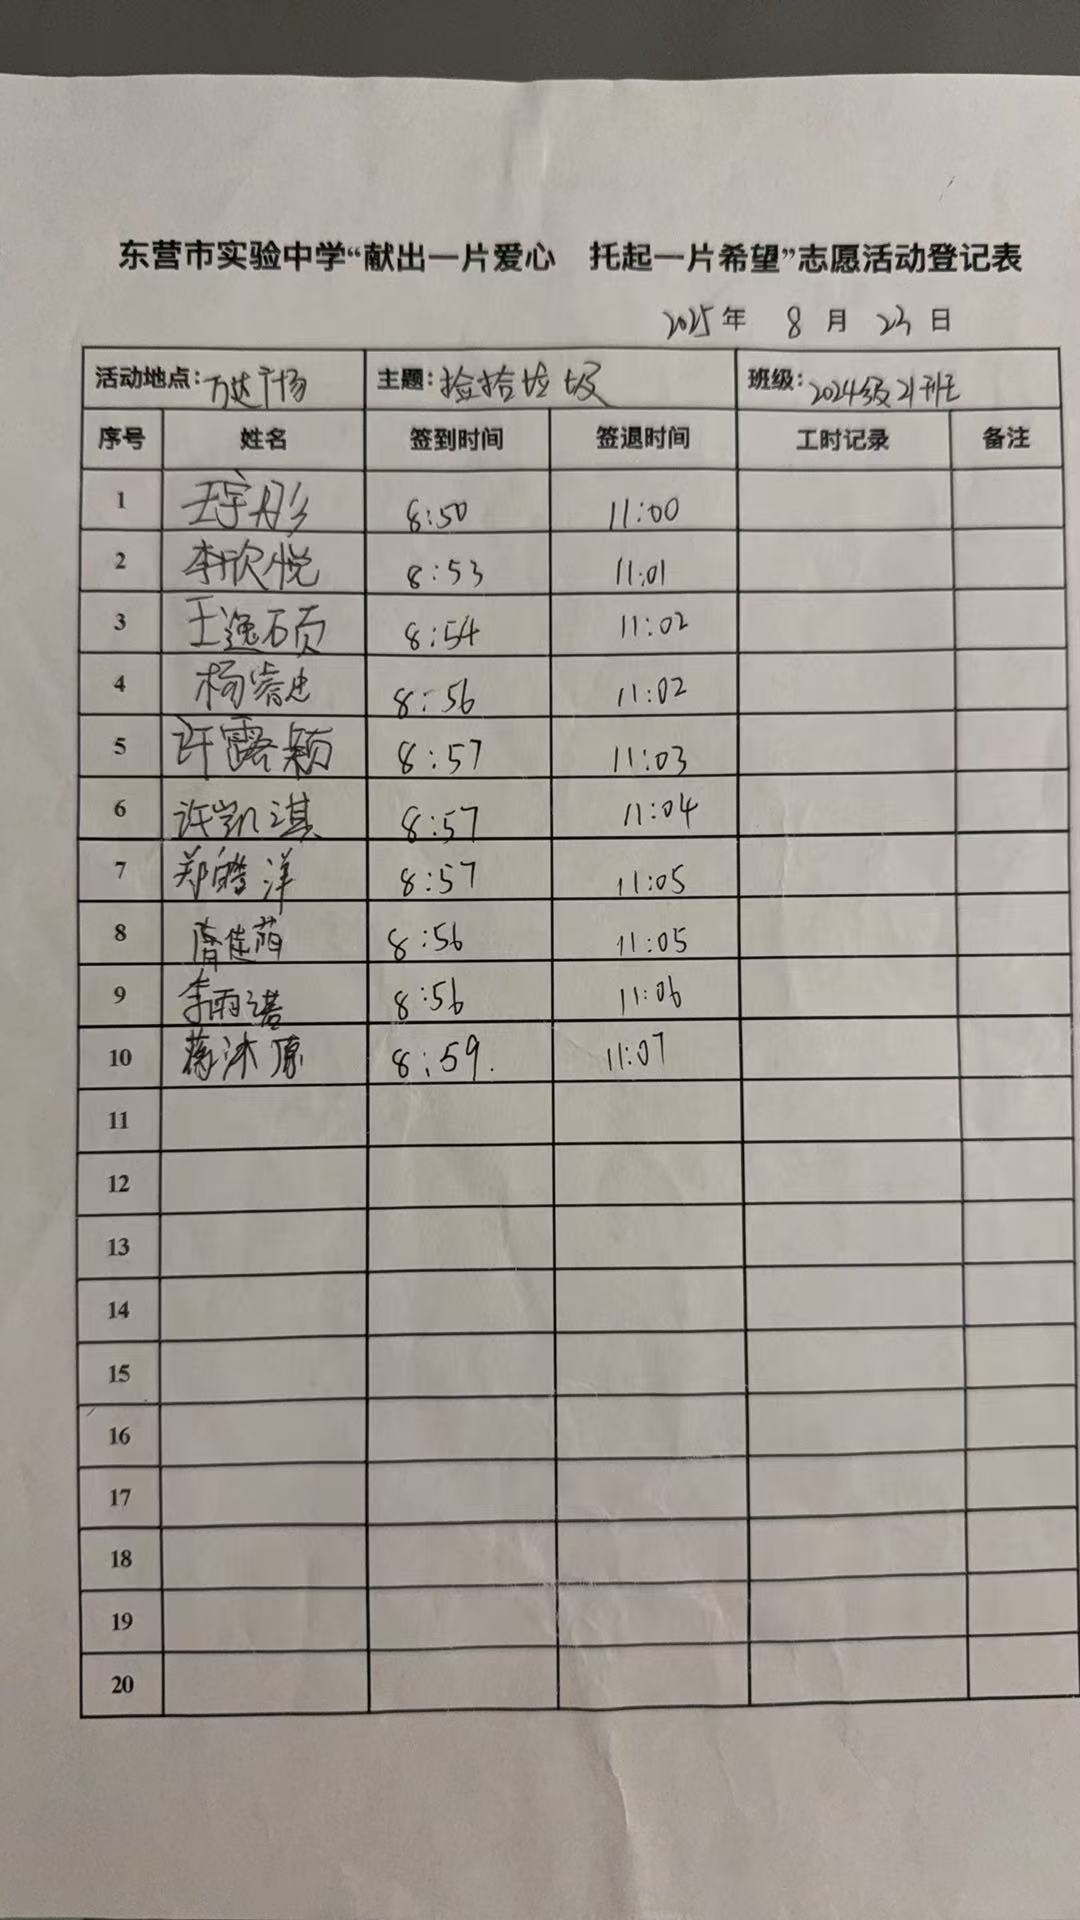 东营市实验中学“献出一片爱心 托起一片希望”志愿活动登记表
2025年 8 月 23 日
活动地点:万达广场 主题:捡拾垃圾 班级:2024级21班
序号 姓名 签到时间 签退时间 工时记录 备注
1 王宇彤 8:50 11:00
2 李欣悦 8:53 11:01
3 王逸硕 8:54 11:02
4 杨睿忠 8:56 11:02
5 许露颖 8:57 11:03
6 许凯淇 8:57 11:04
7 郑皓洋 8:57 11:05
8 隋佳萌 8:56 11:05
9 李雨诺 8:56 11:06
10 蒋沐原 8:59. 11:07
11
12
13
14
15
16
17
18
19
20